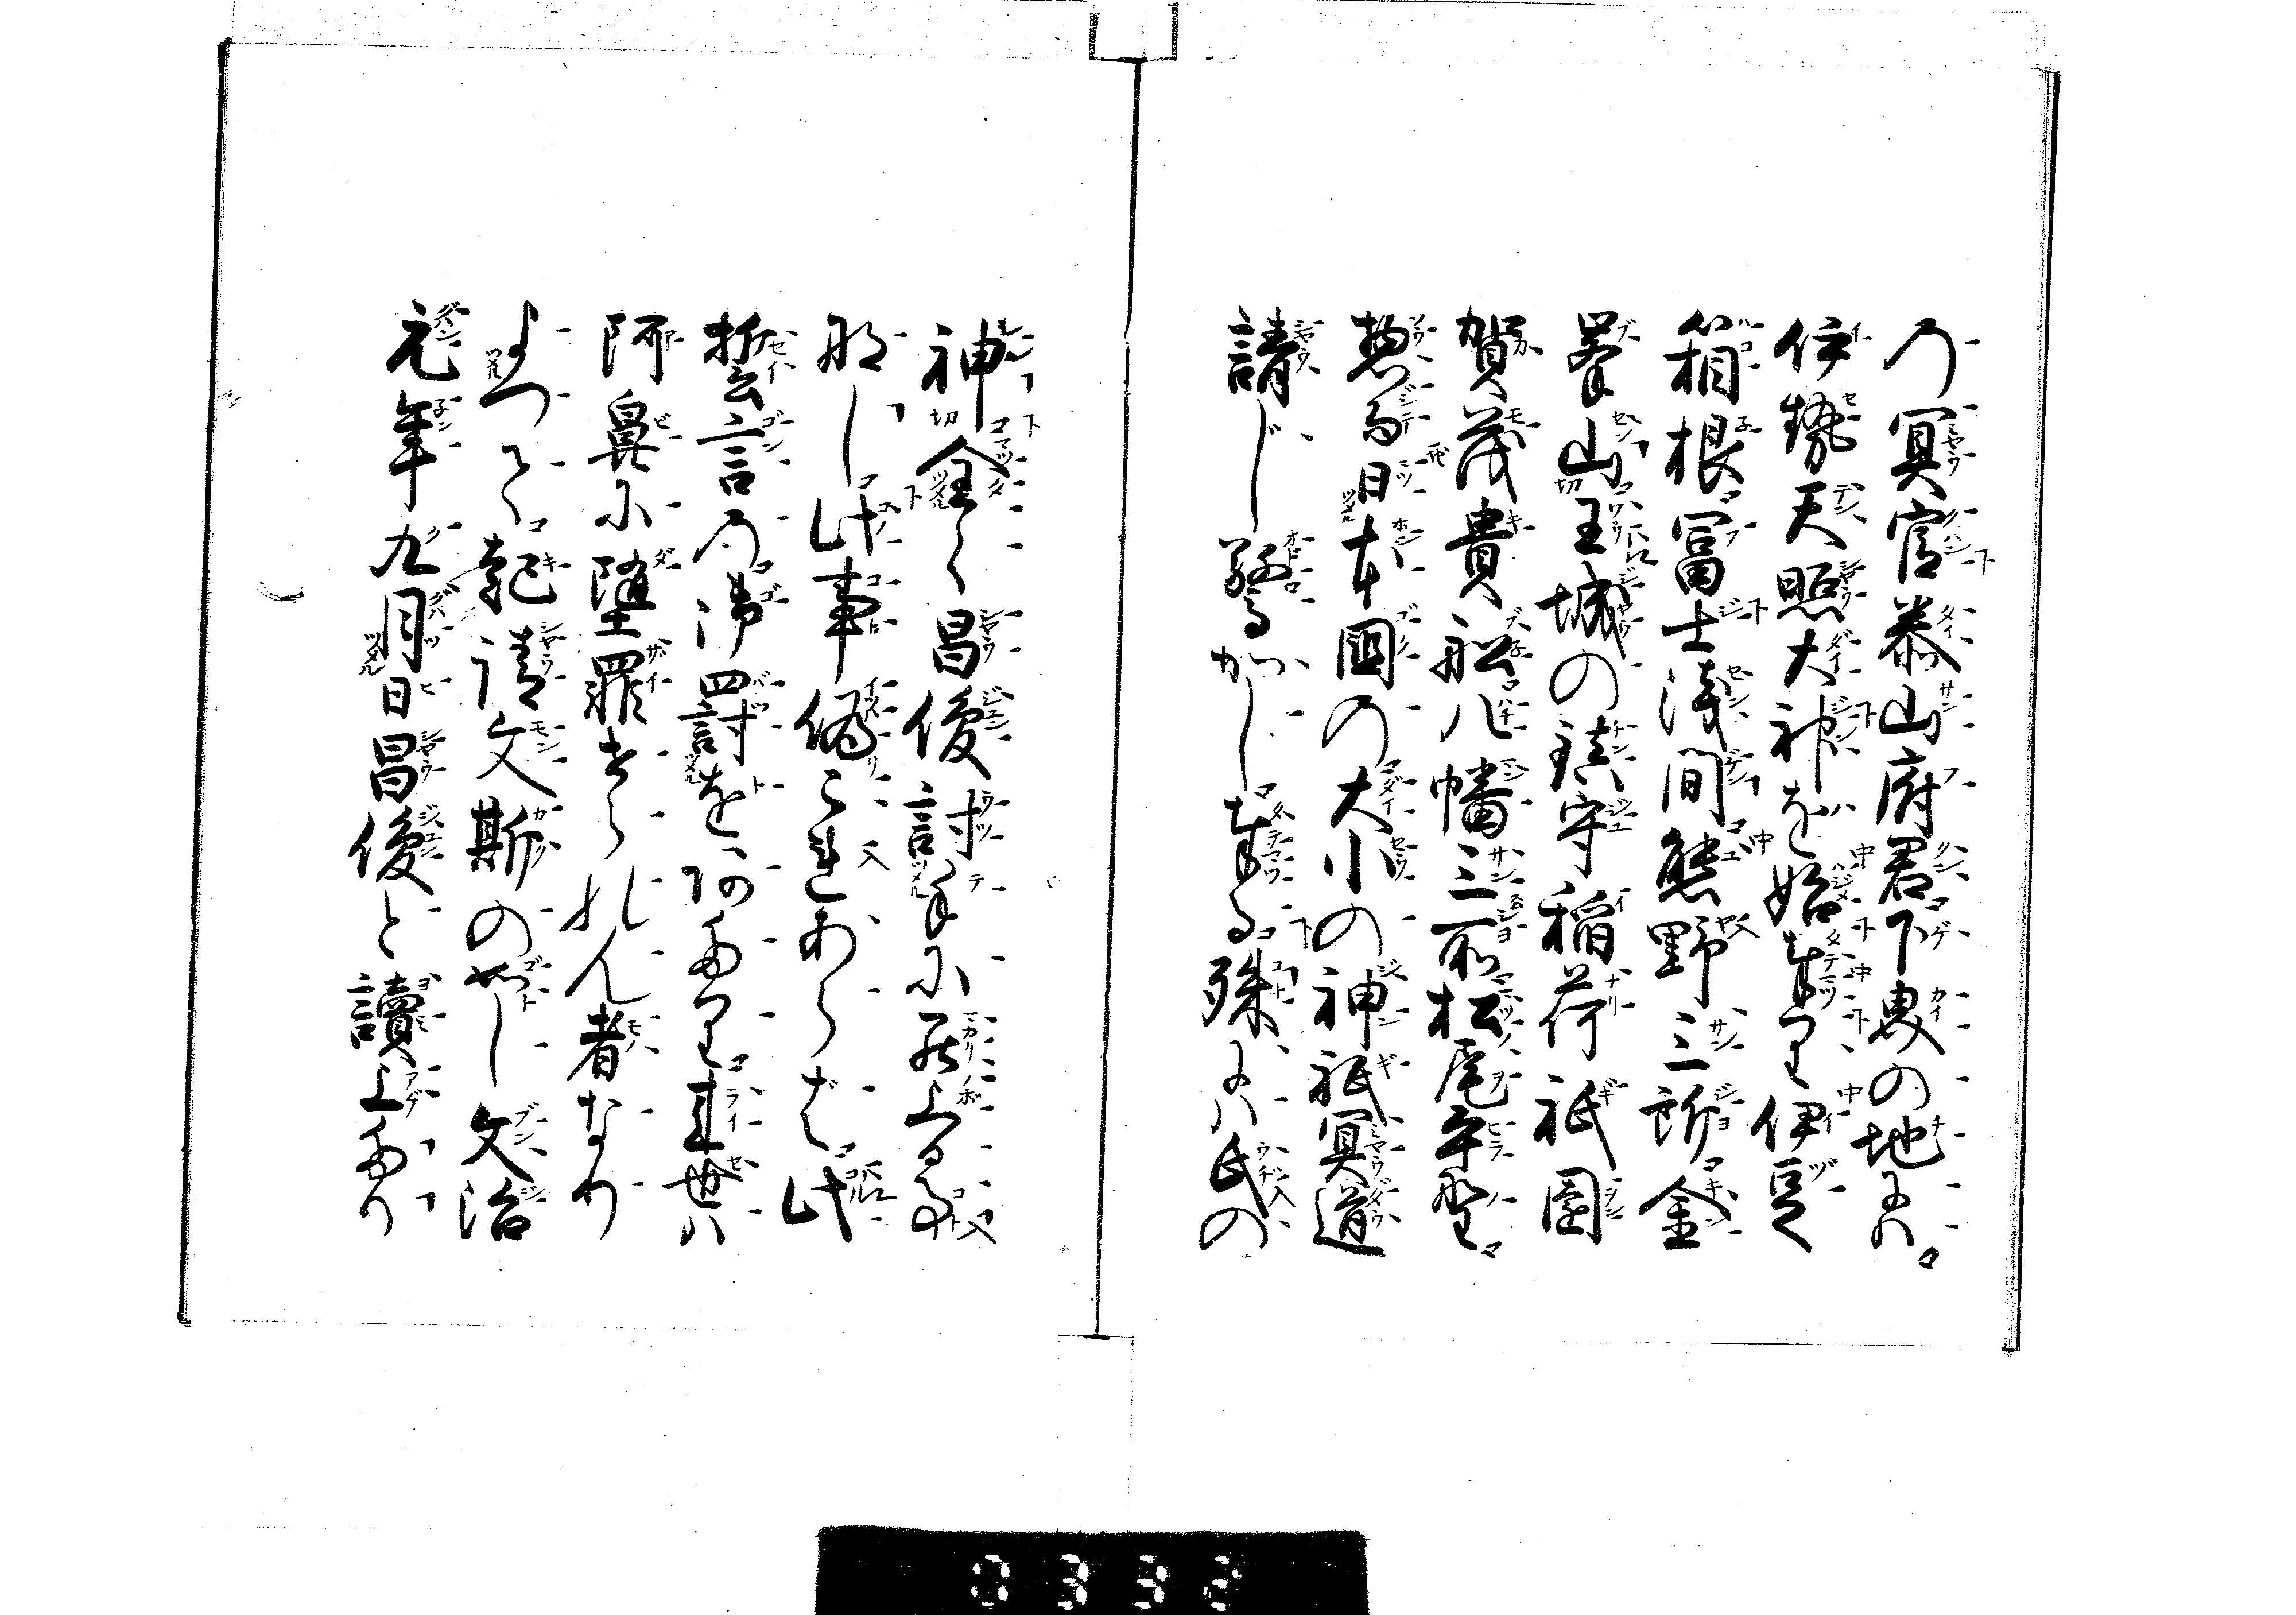 の冥官泰山府君下界の地には
伊勢天照大神を始奉り伊豆
箱根冨士浅間熊野三所金
峯山王城の鎮守稲荷祇園
賀茂貴船八幡三所松尾平野
惣而日本國の大小の神祇冥道
請じ驚かし奉る殊には氏の
神全く昌俊討手に罷上る事
なし此事偽これあらば此
誓言の御罰をあたり来世は
阿鼻に堕罪せられん者なり
よつて起請文斯の如し文治
元年九月日昌俊と讀上たり
0332